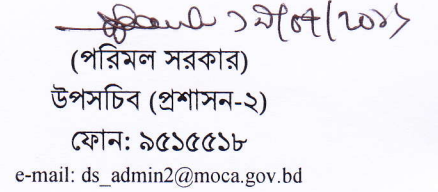 (পরিমল সরকার)
উপসচিব (প্রশাসন-২)
ফোন: ৯৫১৫৫১৮
e-mail: ds_admin2@moca.gov.bd